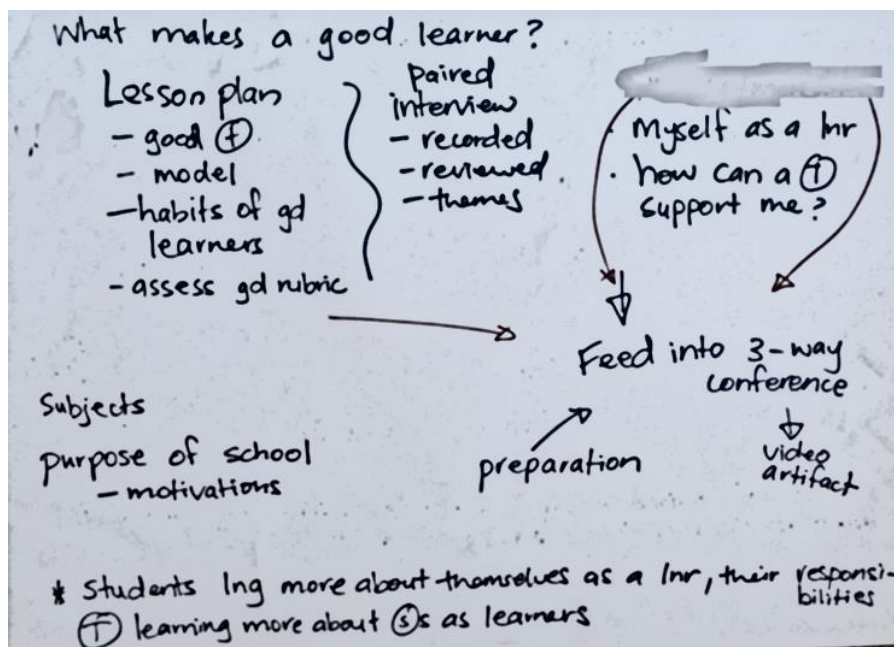 What makes a good learner?
Lesson plan
- good Ⓣ
- model
- habits of gd
learners
- assess gd rubric
paired
interview
- recorded
- reviewed.
- themes
Myself as a lnr
· how can a Ⓣ
support me?
Feed into 3-way
conference
video
artifact
preparation
Subjects
purpose of school
- motivations
* Students lng more about themselves as a lnr, their responsi-
bilities
Ⓣ learning more about Ⓢs as learners